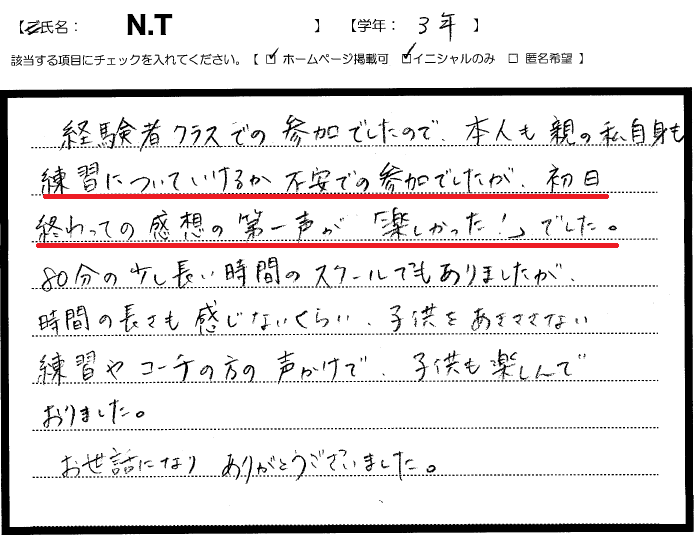 【氏名: N.T 】 【学年: 3年 】
該当する項目にチェックを入れてください。【 ☑ ホームページ掲載可 ☑イニシャルのみ □ 匿名希望 】
経験者クラスでの参加でしたので、本人も親の私自身も
練習についていけるか不安での参加でしたが、初日
終わっての感想の第一声が「楽しかった!」でした。
80分の少し長い時間のスクールでもありましたが、
時間の長さも感じないくらい、子供をあきささない
練習やコーチの方の声かけで、子供も楽しんで
おりました。
お世話になりありがとうございました。